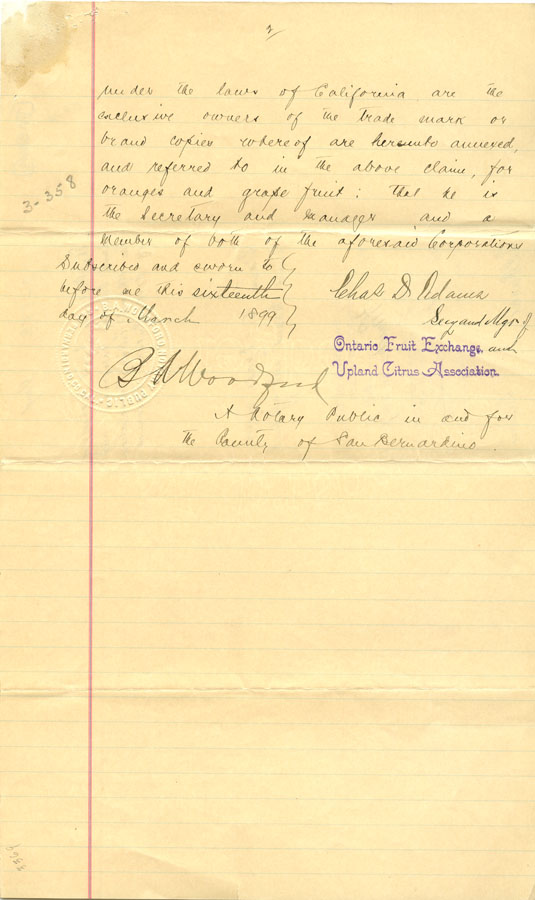 2/
under the laws of California are the
exclusive owners of the trade mark or
brand copies whereof are hereunto annexed,
and referred to in the above claim, for
oranges and grape fruit: that he is
the Secretary and Manager and a
Member of both of the aforesaid Corporations
3-358
Subscribed and sworn to
before me this sixteenth
day of March 1899
Chas D. Adams
Secy and Mgr of
Ontario Fruit Exchange, and
Upland Citrus Association.
B A Woodford
A Notary Public in and for
the County of San Bernardino.